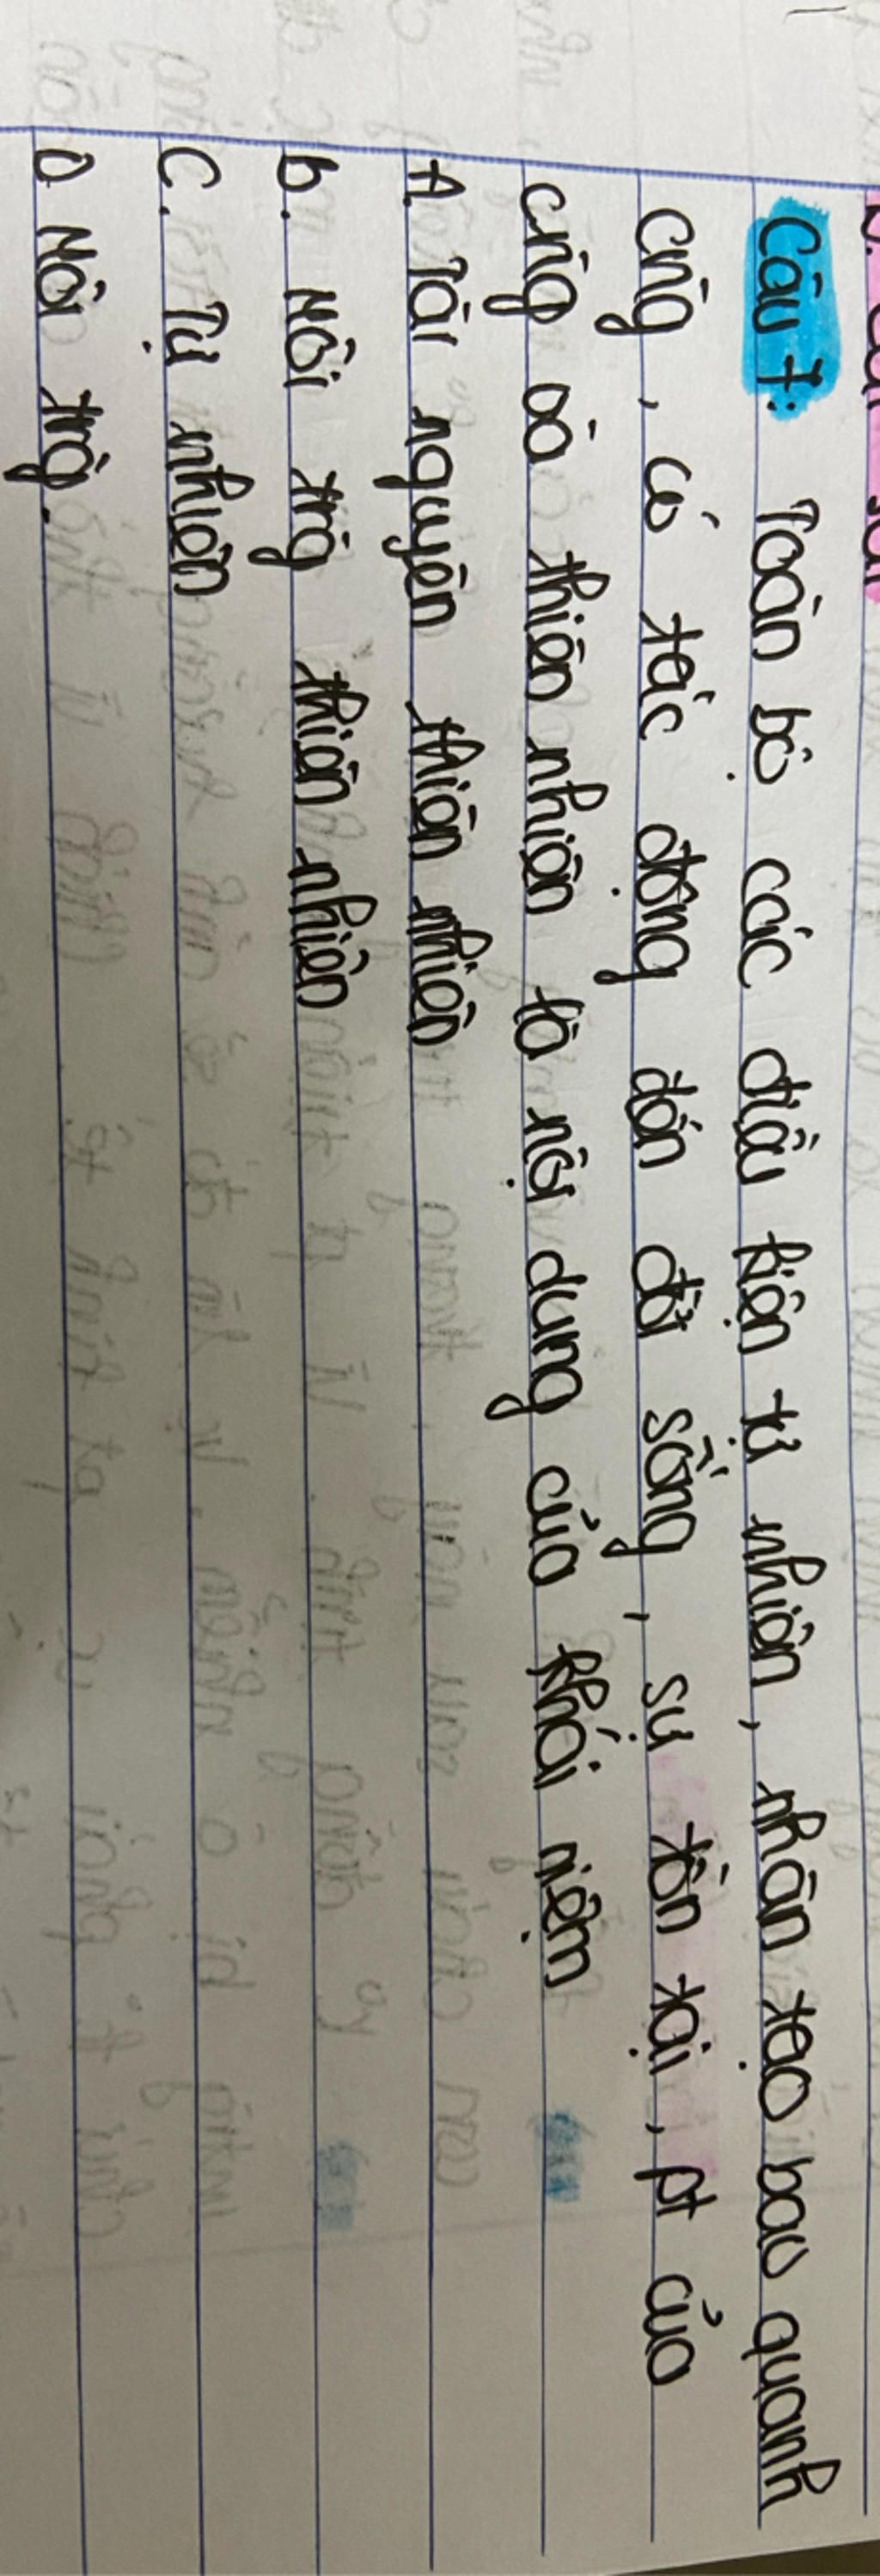 Câu 7: Toàn bộ các điều kiện tự nhiên, nhân tạo bao quanh
cng̀, có tác động đến đời sống, sự tồn tại, pt của
cng̀ và thiên nhiên là nội dung của khái niệm
A. Tài nguyên thiên nhiên
b. Môi trg̀ thiên nhiên
C. Tự nhiên
D Môi trg̀.